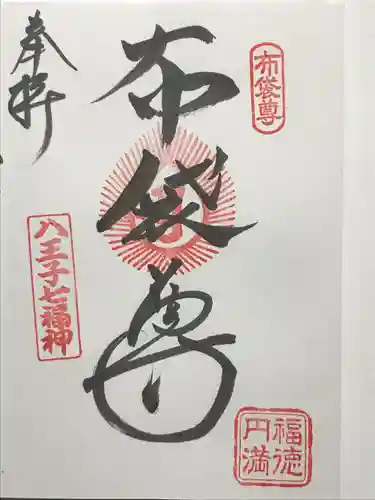 布袋尊
布袋尊
奉拝
八王子七福神
福徳
円満